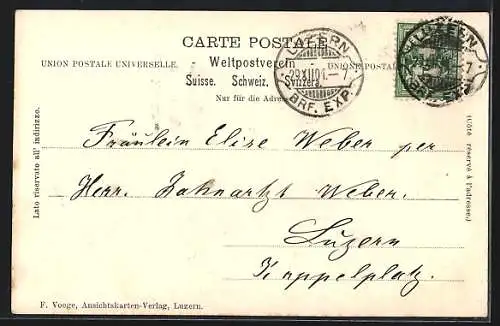 CARTE POSTALE.
Weltpostverein
UNION POSTALE UNIVERSELLE.
UNIONE POSTALE
Suisse. Schweiz. Svizzera.
Nur für die Adresse
LUZERN
29.XII.01.-7
BRF. EXP.
LUZERN
Fräulein Elise Weber per
Herr. Zahnartzt Weber.
Luzern
Kappelplatz.
Lato riservato all' indirizzo.
(Côté réservé à l'adresse.)
F. Vooge, Ansichtskarten-Verlag, Luzern.